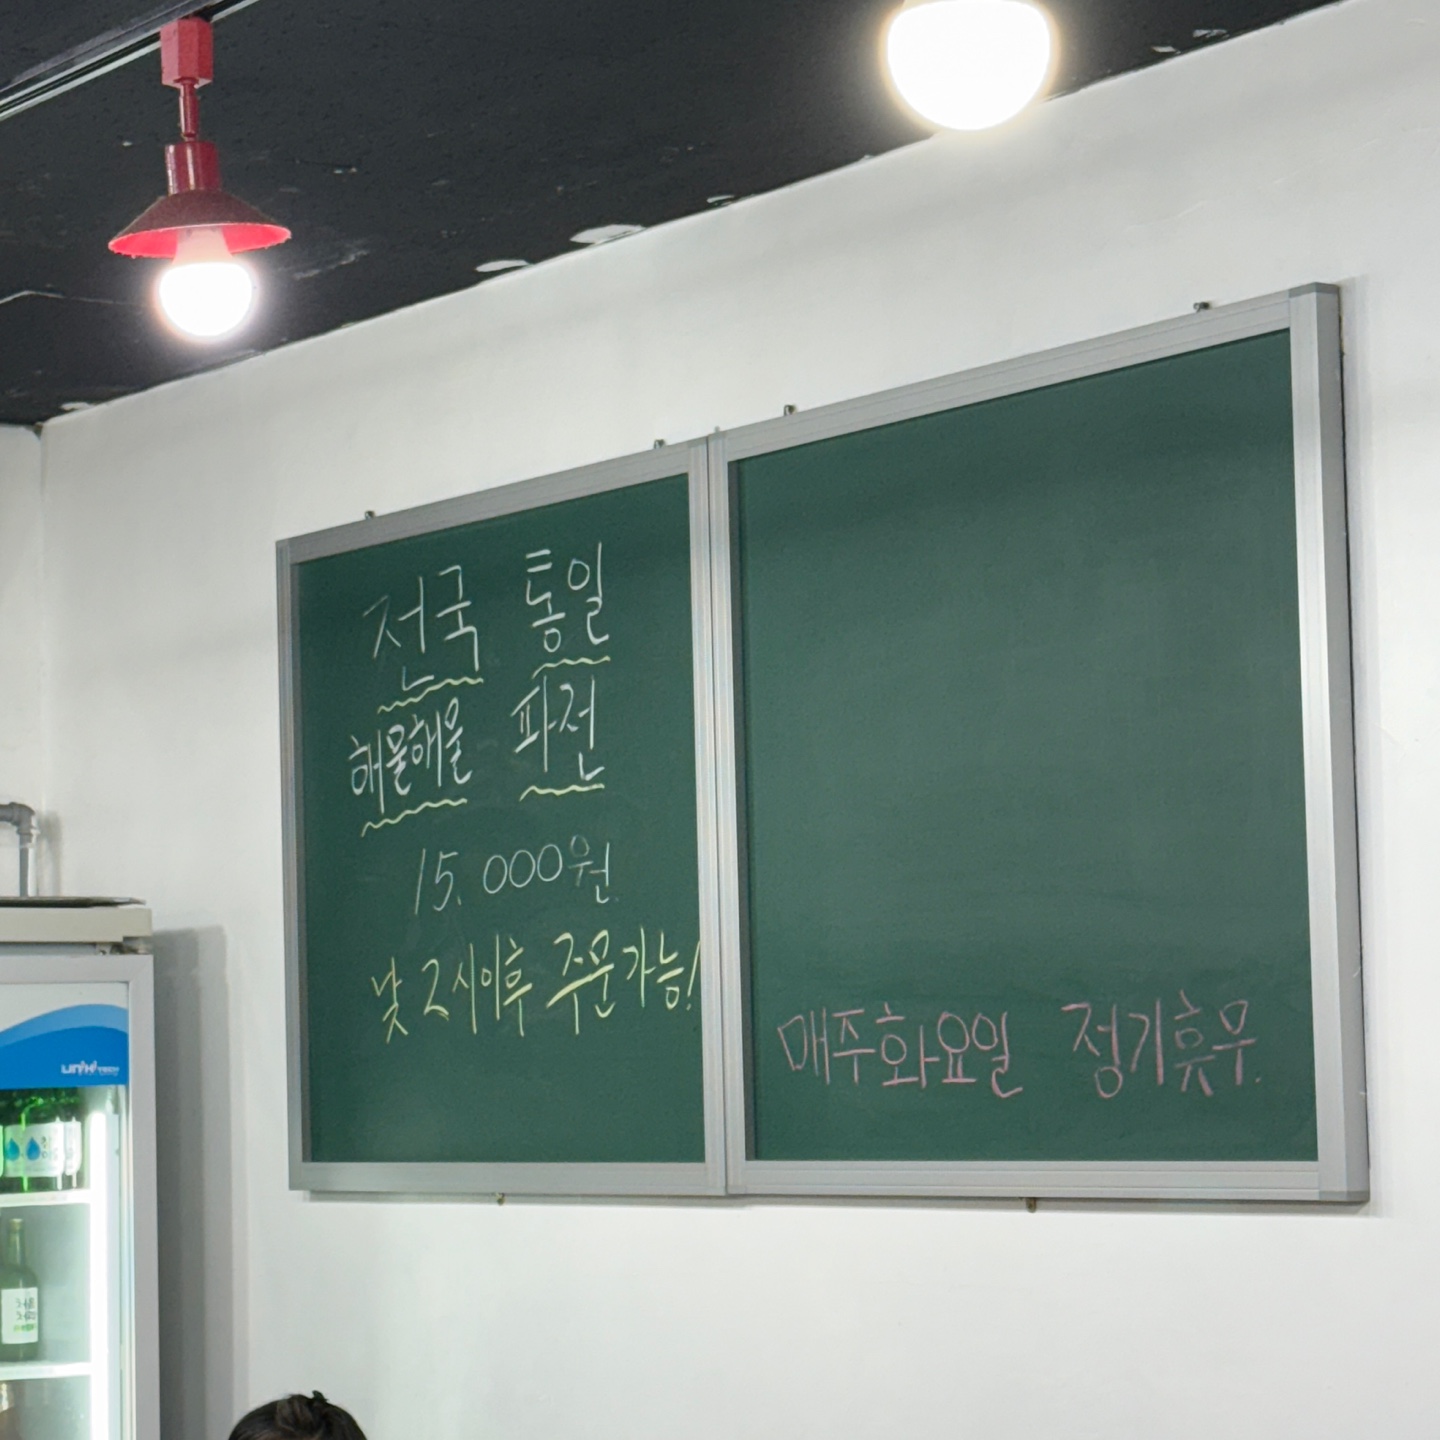 전국 통일
해물해물 파전
15.000원.
낮 2시이후 주문가능!
매주화요일 정기휴무.